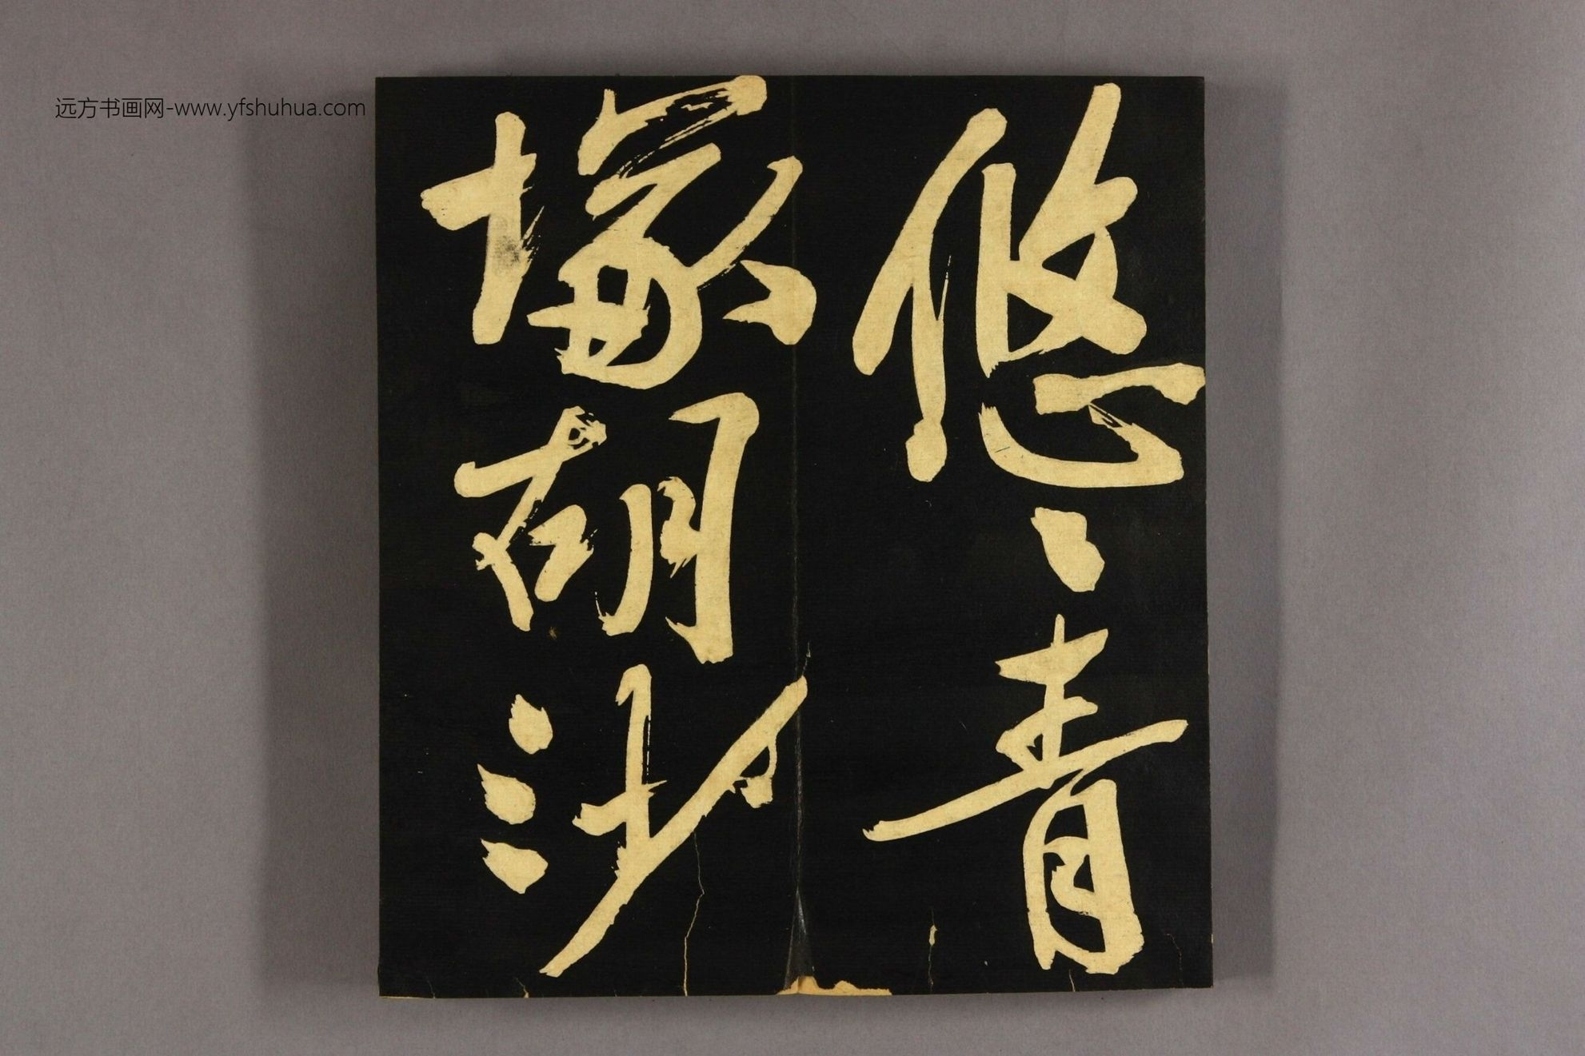 远方书画网-www.yfshuhua.com
悠〻青
塚胡沙